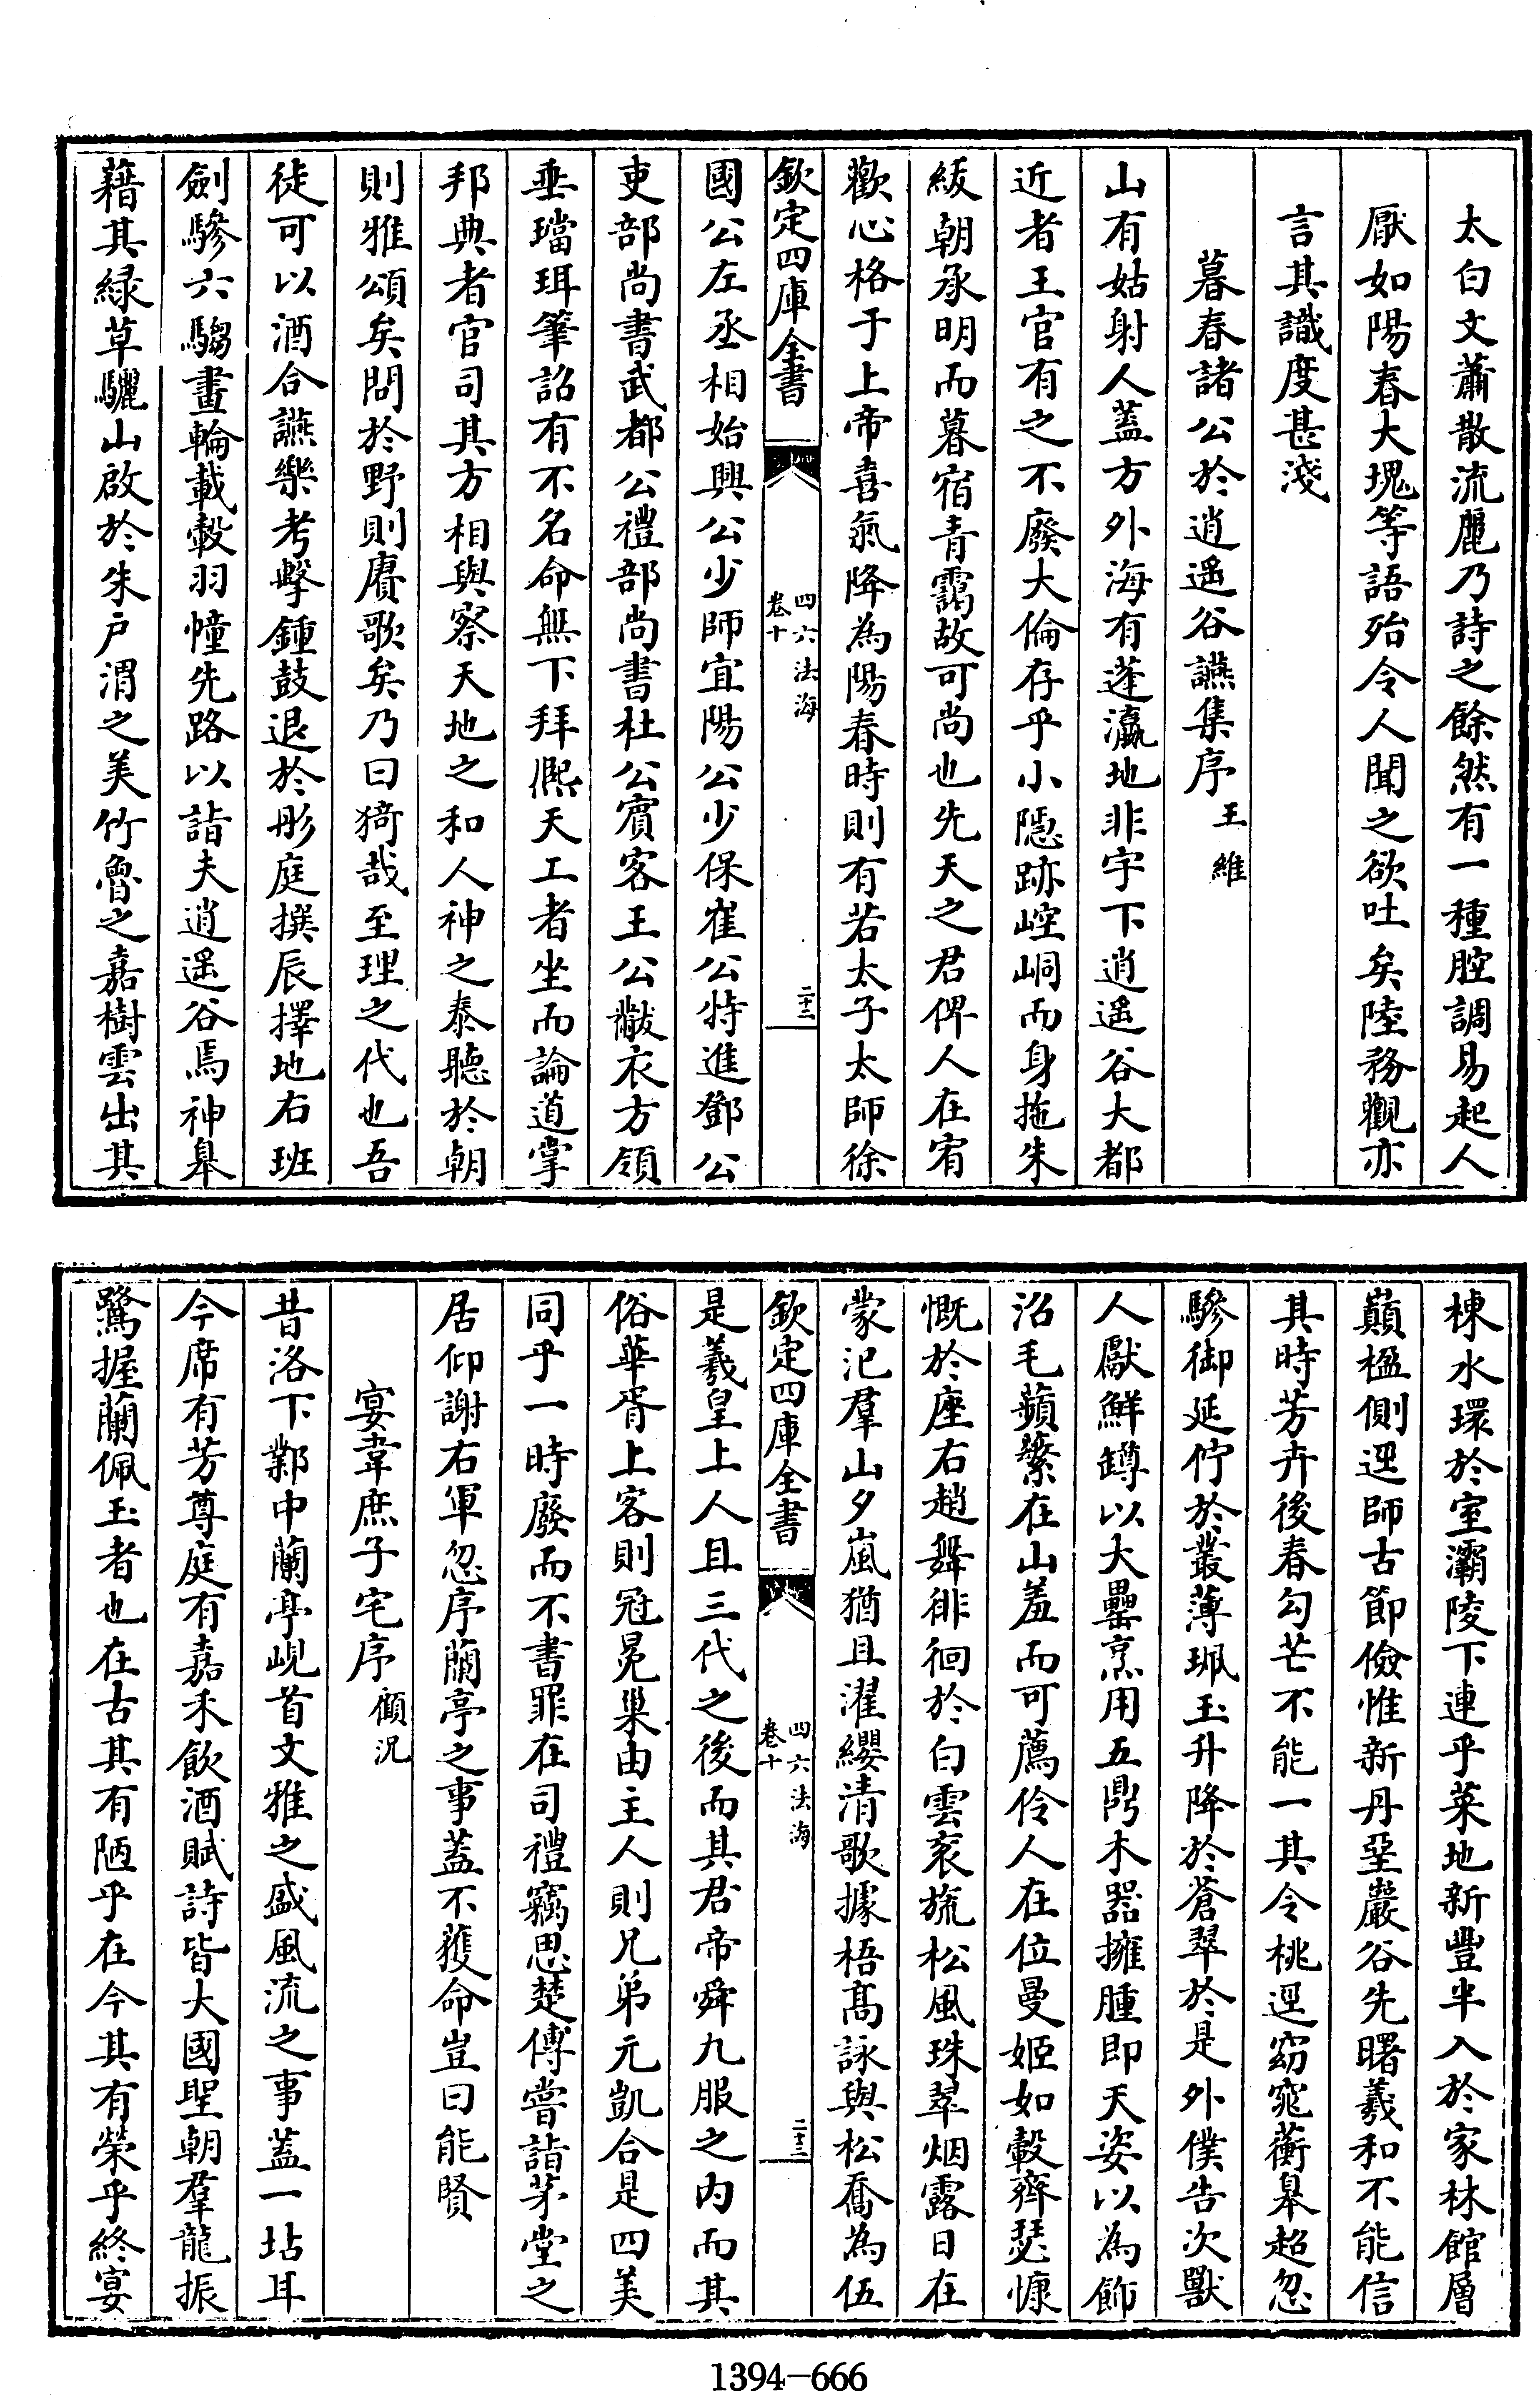 太白文蕭散流麗乃詩之餘然有一種腔調易起人
厭如陽春大塊等語殆令人聞之欲吐矣陸務觀亦
言其識度甚淺
暮春諸公於逍遥谷讌集序王維
山有姑射人蓋方外海有蓬瀛地非宇下逍遥谷大都
近者王官有之不廢大倫存乎小隱跡崆峒而身拖朱
紱朝承明而暮宿青靄故可尚也先天之君俾人在宥
歡心格于上帝喜氣降為陽春時則有若太子太師徐
欽定四庫全書
四六法海
卷十
二十三
國公左丞相始興公少師宜陽公少保崔公特進鄧公
吏部尚書武都公禮部尚書杜公賓客王公黻衣方領
垂璫珥筆詔有不名命無下拜熈天工者坐而論道掌
邦典者官司其方相與察天地之和人神之泰聽於朝
則雅頌矣問於野則賡歌矣乃曰猗哉至理之代也吾
徒可以酒合讌樂考擊鍾鼓退於彤庭撰辰擇地右班
劍驂六騶畫輪載轂羽幢先路以詣夫逍遥谷焉神皐
藉其緑草驪山啟於朱户渭之美竹魯之嘉樹雲出其
棟水環於室灞陵下連乎菜地新豐半入於家林館層
巔楹側逕師古節儉惟新丹堊巖谷先曙羲和不能信
其時芳卉後春勾芒不能一其令桃逕窈窕蘅皐超忽
驂御延佇於叢薄珮玉升降於蒼翠於是外僕告次獸
人獻鮮罇以大罍烹用五鼎木器擁腫即天姿以為飾
沼毛蘋蘩在山羞而可薦伶人在位曼姬如轂齊瑟慷
慨於座右趙舞徘徊於白雲衮旒松風珠翠烟露日在
蒙汜羣山夕嵐猶且濯纓清歌據梧髙詠與松喬為伍
欽定四庫全書
四六法海
卷十
二十三
是羲皇上人且三代之後而其君帝舜九服之内而其
俗華胥上客則冠冕巢由主人則兄弟元凱合是四美
同乎一時廢而不書罪在司禮竊思楚傅嘗詣茅堂之
居仰謝右軍忽序蘭亭之事蓋不獲命豈曰能賢
宴韋庶子宅序顧况
昔洛下鄴中蘭亭峴首文雅之盛風流之事蓋一坫耳
今席有芳尊庭有嘉禾飲酒賦詩皆大國聖朝羣龍振
鷺握蘭佩玉者也在古其有陋乎在今其有榮乎終宴
1394-666